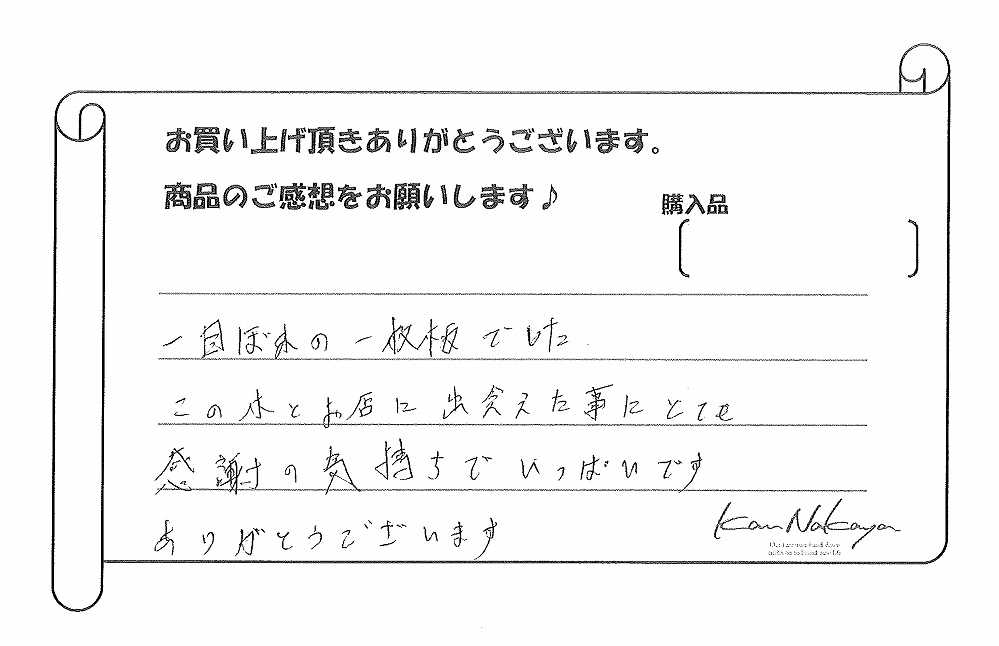 お買い上げ頂きありがとうございます。
商品のご感想をお願いします♪
購入品
一目ぼれの一枚板でした
この木とお店に出会えた事にとても
感謝の気持ちでいっぱいです
ありがとうございます
Kan Nakaya